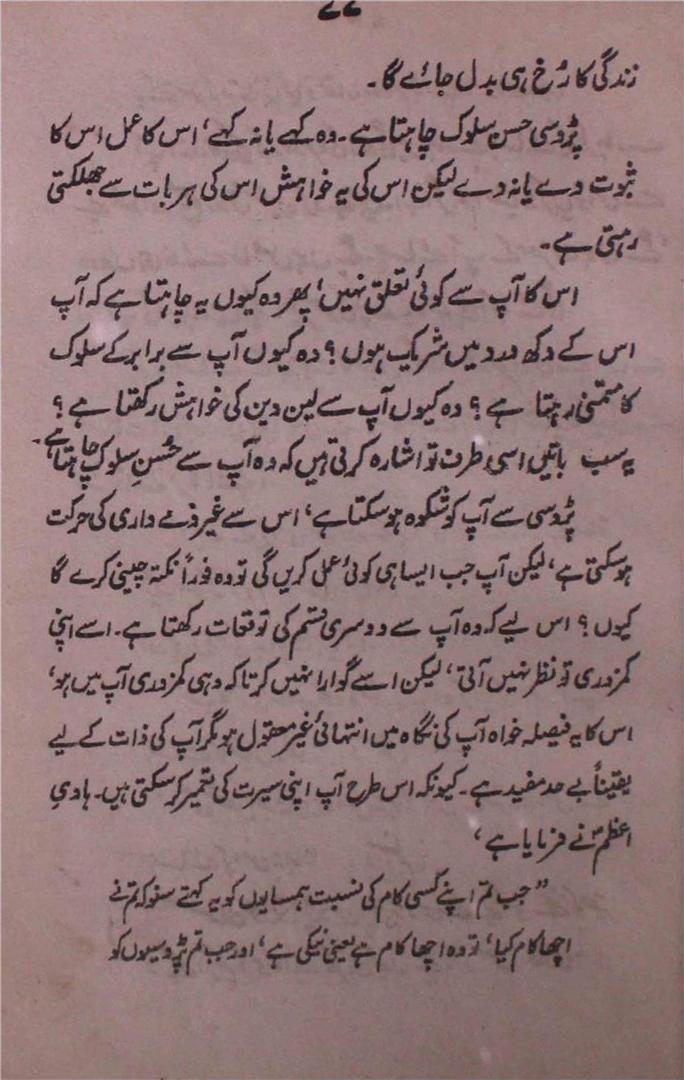 ۷۷
زندگی کا رُخ ہی بدل جائے گا۔
پڑوسی حسن سلوک چاہتا ہے۔ وہ کہے یا نہ کہے، اس کا عمل اس کا
ثبوت دے یا نہ دے لیکن اس کی یہ خواہش اس کی ہر بات سے جھلکتی
رہتی ہے۔
اس کا آپ سے کوئی تعلق نہیں، پھر وہ کیوں یہ چاہتا ہے کہ آپ
اس کے دکھ درد میں شریک ہوں؟ وہ کیوں آپ سے برابر کے سلوک
کا متمنی رہتا ہے؟ وہ کیوں آپ سے لین دین کی خواہش رکھتا ہے؟
یہ سب باتیں اسی طرف تو اشارہ کرتی ہیں کہ وہ آپ سے حُسنِ سلوک چاہتا ہے۔
پڑوسی سے آپ کو شکوہ ہوسکتا ہے، اس سے غیر ذمے داری کی حرکت
ہوسکتی ہے، لیکن آپ جب ایسا ہی کوئی عمل کریں گی تو وہ فوراً نکتہ چینی کرے گا
کیوں؟ اس لیے کہ وہ آپ سے دوسری قسم کی توقعات رکھتا ہے۔ اسے اپنی
کمزوری تو نظر نہیں آتی، لیکن اسے گوارا نہیں کرتا کہ وہی کمزوری آپ میں ہو،
اس کا یہ فیصلہ خواہ آپ کی نگاہ میں انتہائی غیر معقول ہو مگر آپ کی ذات کے لیے
یقیناً بے حد مفید ہے۔ کیونکہ اس طرح آپ اپنی سیرت کی تعمیر کرسکتی ہیں۔ ہادیِ
اعظمؐ نے فرمایا ہے،
”جب تم اپنے کسی کام کی نسبت ہمسایوں کو یہ کہتے سنو کہ تم نے
اچھا کام کیا، تو وہ اچھا کام ہے یعنی نیکی ہے، اور جب تم پڑوسیوں کو